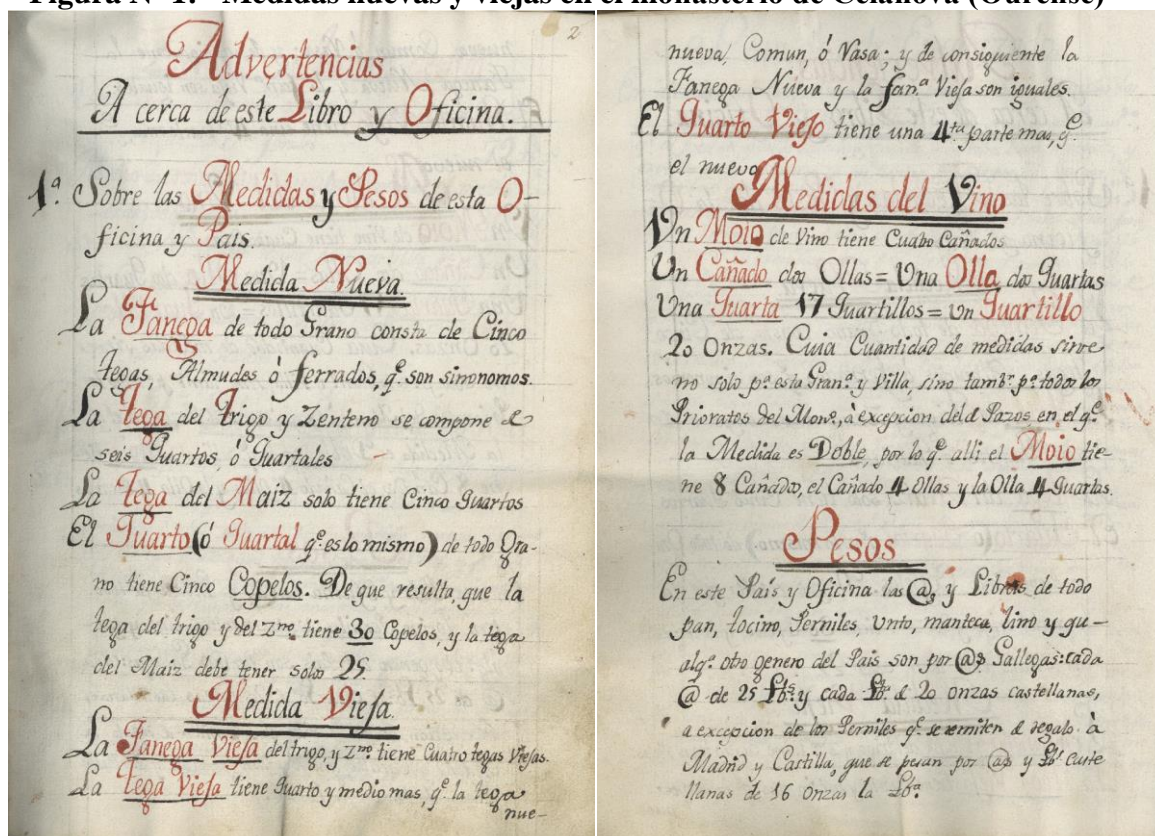 Figura Nº 1.- Medidas nuevas y viejas en el monasterio de Celanova (Ourense)
2
Advertencias
A cerca de este Libro y Oficina.
1.ª Sobre las Medidas y Pesos de esta O-
ficina y Pais.
Medida Nueva.
La Fanega de todo Grano consta de Cinco
tegas, Almudes ó ferrados, q.e son sinonomos.
La tega del trigo y Zenteno se compone de
seis Quartos, ó Quartales
La tega del Maiz solo tiene Cinco Quartos
El Quarto (ó Quartal q.e es lo mismo) de todo Gra-
no tiene Cinco Copelos. De que resulta, que la
tega del trigo y del Z.no tiene 30 Copelos, y la tega
del Maiz debe tener solos 25.
Medida Vieja.
La Fanega Vieja del trigo, y Z.no tiene Cuatro tegas Viejas.
La tega Vieja tiene Quarto y medio mas, q.e la tega
nue-
nueva, Comun, ó Vasa; y de consiguiente la
Fanega Nueva y la fan.a Vieja son iguales.
El Quarto Viejo tiene una 4.ta parte mas, q.e
el nuevo
Medidas del Vino
Un Moio de Vino tiene Cuatro Cañados
Un Cañado dos Ollas = Una Olla dos Quartas
Una Quarta 17 Quartillos = un Quartillo
20 Onzas. Cuia Cuantidad de medidas sirve
no solo p.a esta Gran.a y Villa, sino tamb.n p.a todos los
Prioratos del Mon.o, à excepcion del de Pazos en el q.e
la Medida es Doble, por lo q.e alli el Moio tie-
ne 8 Cañados, el Cañado 4 Ollas y la Olla 4 Quartas.
Pesos
En este Pais y Oficina las @s y Libras de todo
pan, tocino, Perniles, Unto, manteca, lino y qu-
alq.a otro genero del Pais son por @s Gallegas: cada
@ de 25 lb.s y cada lb.a de 20 onzas castellanas,
a excepcion de los Perniles q.e se remiten de regalo à
Madrid y Castilla, que se pesan por @s y lb.s Caste
llanas de 16 onzas la lb.a